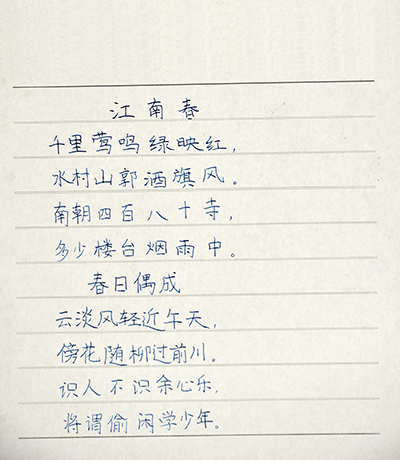 江南春
千里莺鸣绿映红,
水村山郭酒旗风。
南朝四百八十寺,
多少楼台烟雨中。
春日偶成
云淡风轻近午天,
傍花随柳过前川。
识人不识余心乐,
将谓偷闲学少年。